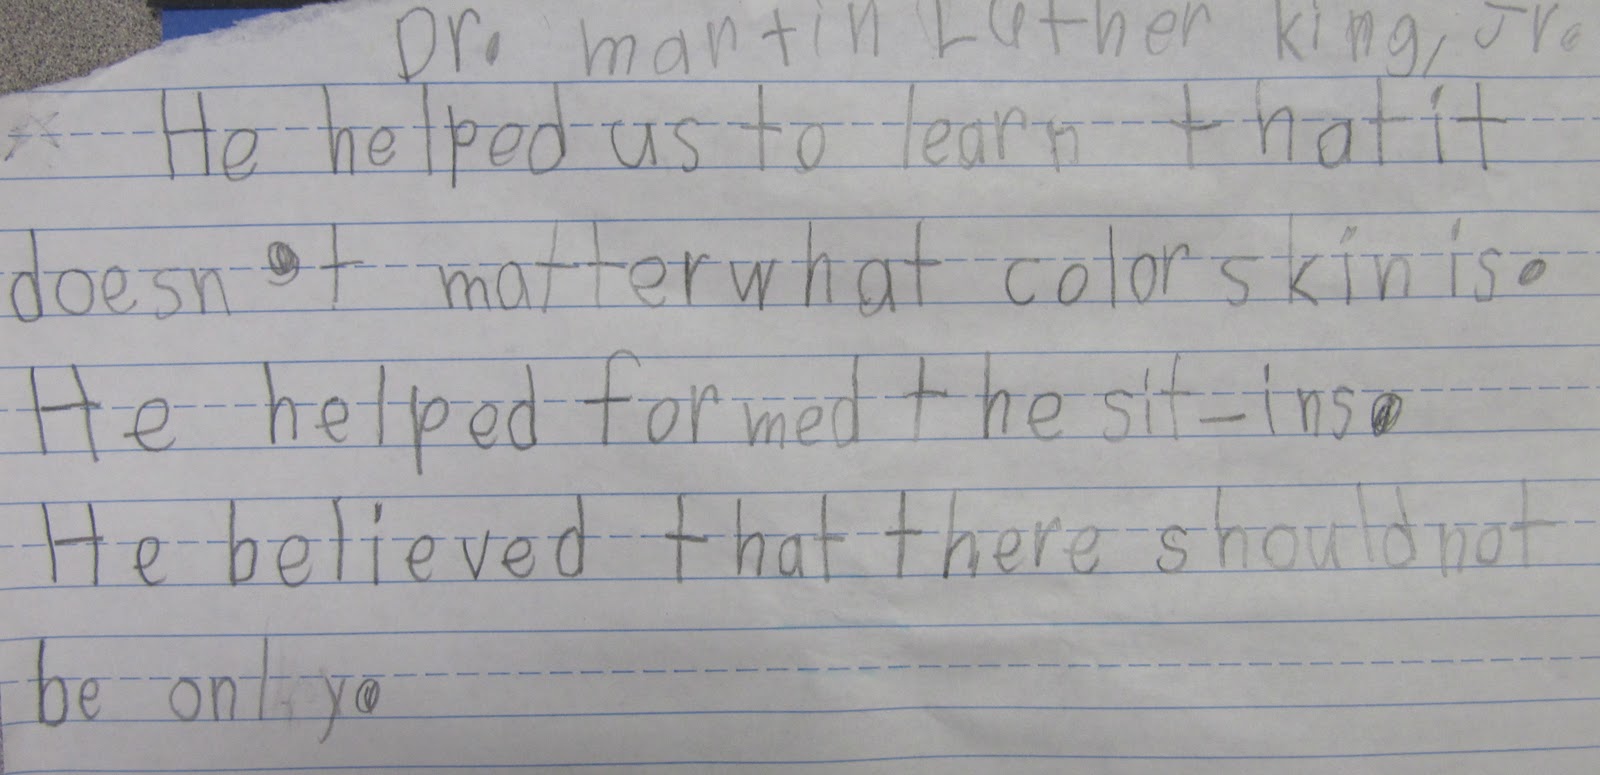 Dr. martin Luther king, Jr.
He helped us to learn that it
doesn't matter what color skin is.
He helped formed the sit-ins.
He believed that there should not
be only.